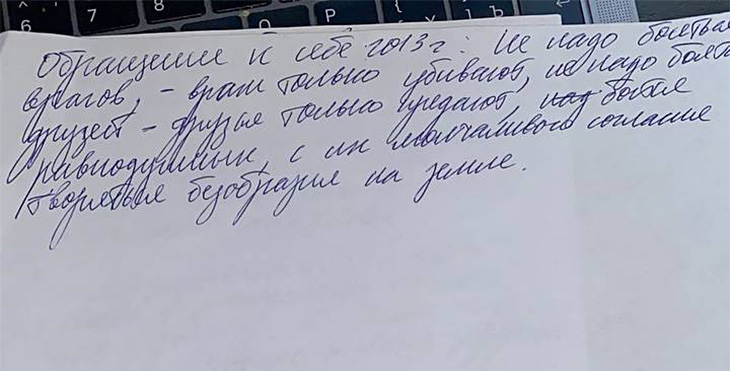 6 7 8 О Р { [ Ъ
Обращение к себе 2013 г: Не надо бояться
врагов, - враги только убивают, не надо боять
друзей - друзья только предают, над бойтся
равнодушных, с их молчаливого согласие
творяться безобразия на земле.